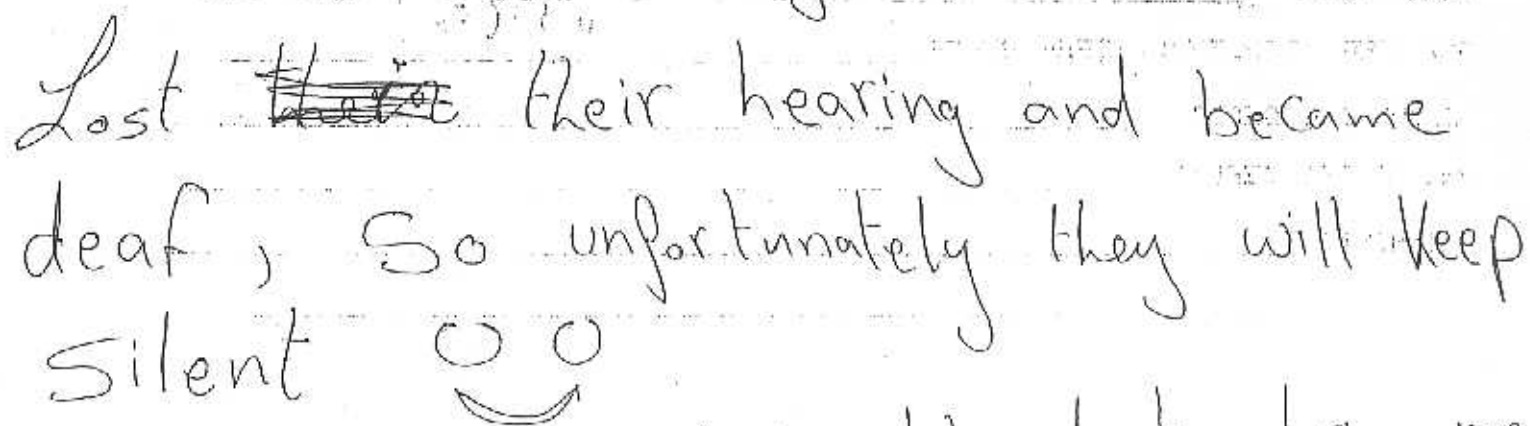 Lost their hearing and became
deaf, So unfortunately they will keep
Silent